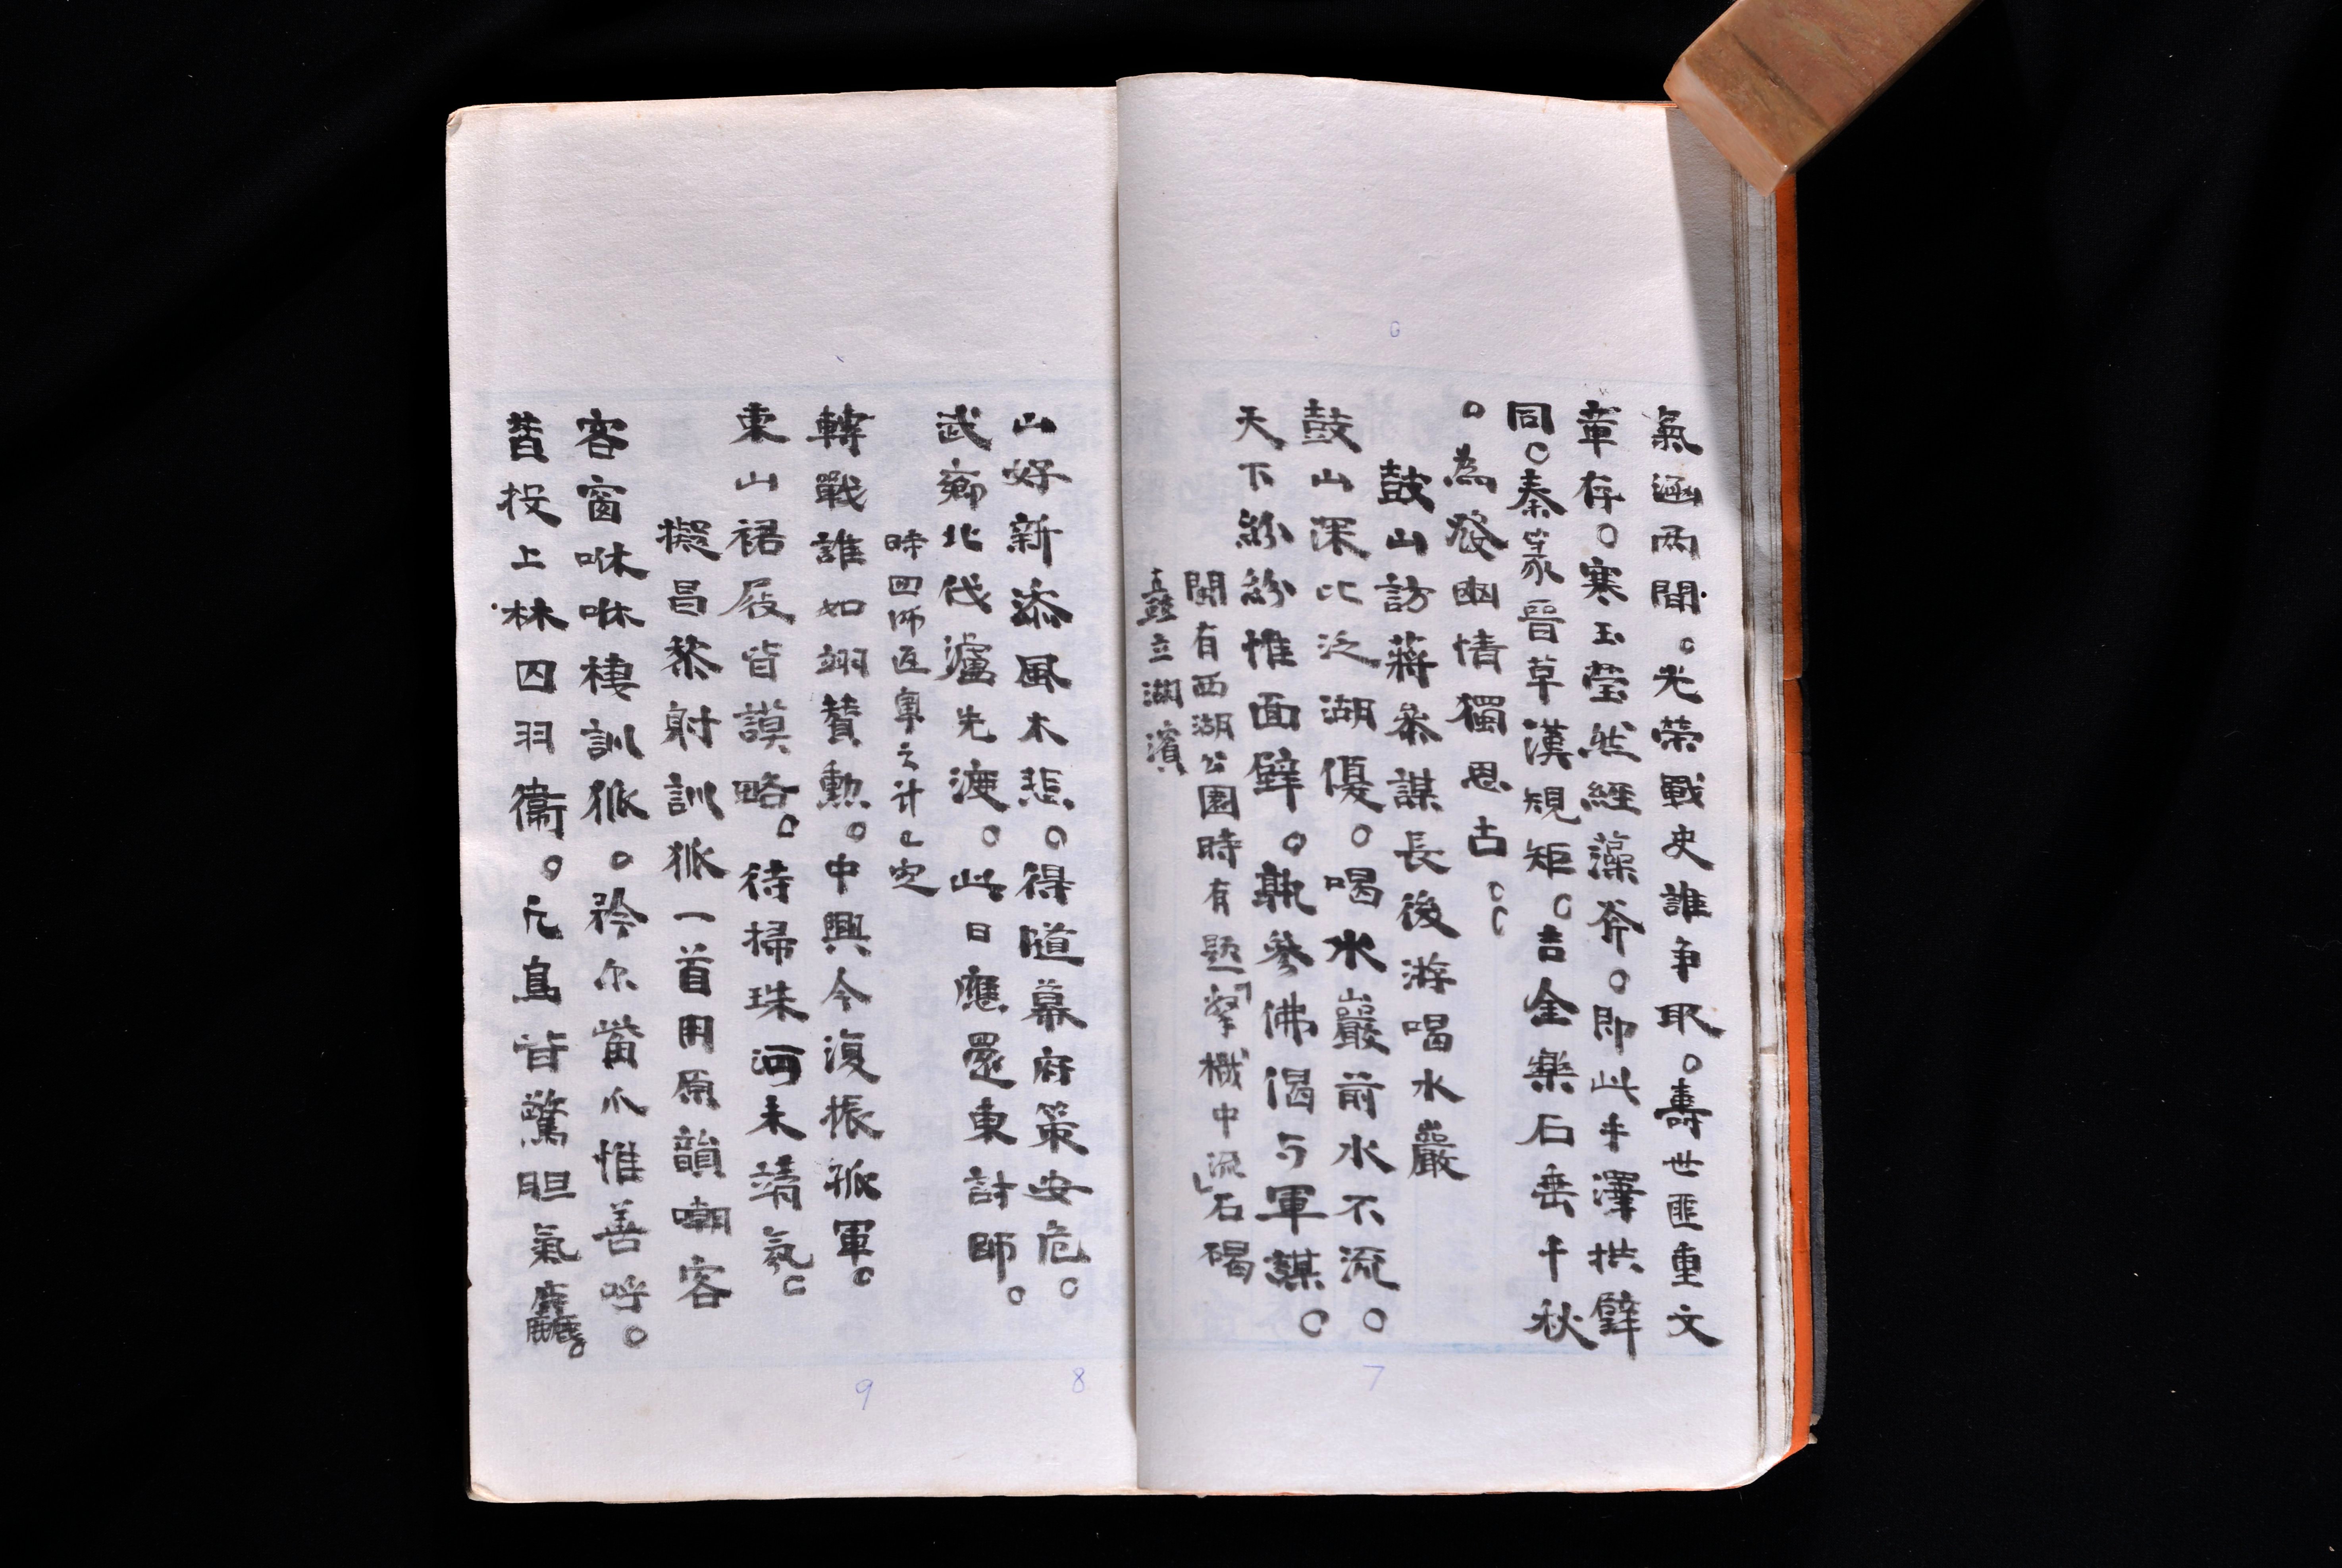 氣涵兩間。光榮戰史誰爭取。壽世匪重文
章存。寒玉瑩然經藻斧。即此手澤拱璧
同。秦篆晉草漢規矩。吉金樂石垂千秋
。為發幽情獨思古。。
鼓山訪蔣參謀長後游喝水巖
鼓山深比泛湖優。喝水巖前水不流。
天下紛紛惟面壁。孰參佛偈与軍謀。
閩有西湖公園時有題「擊檝中流」石碣
矗立湖濱
6
7
山好新添風木悲。得道幕府策安危。
武鄉北伐瀘先渡。此日應還東討師。
時回師返粵之計已定
轉戰誰如翊贊勳。中興今復振孤軍。
東山裙屐皆謨略。待掃珠河未靖氛。
擬昌黎射訓狐一首用原韻嘲客
客窗咻咻棲訓狐。矜尔觜爪惟善呼。
昔投上林囚羽衞。凡鳥皆驚胆氣麤。
8
9